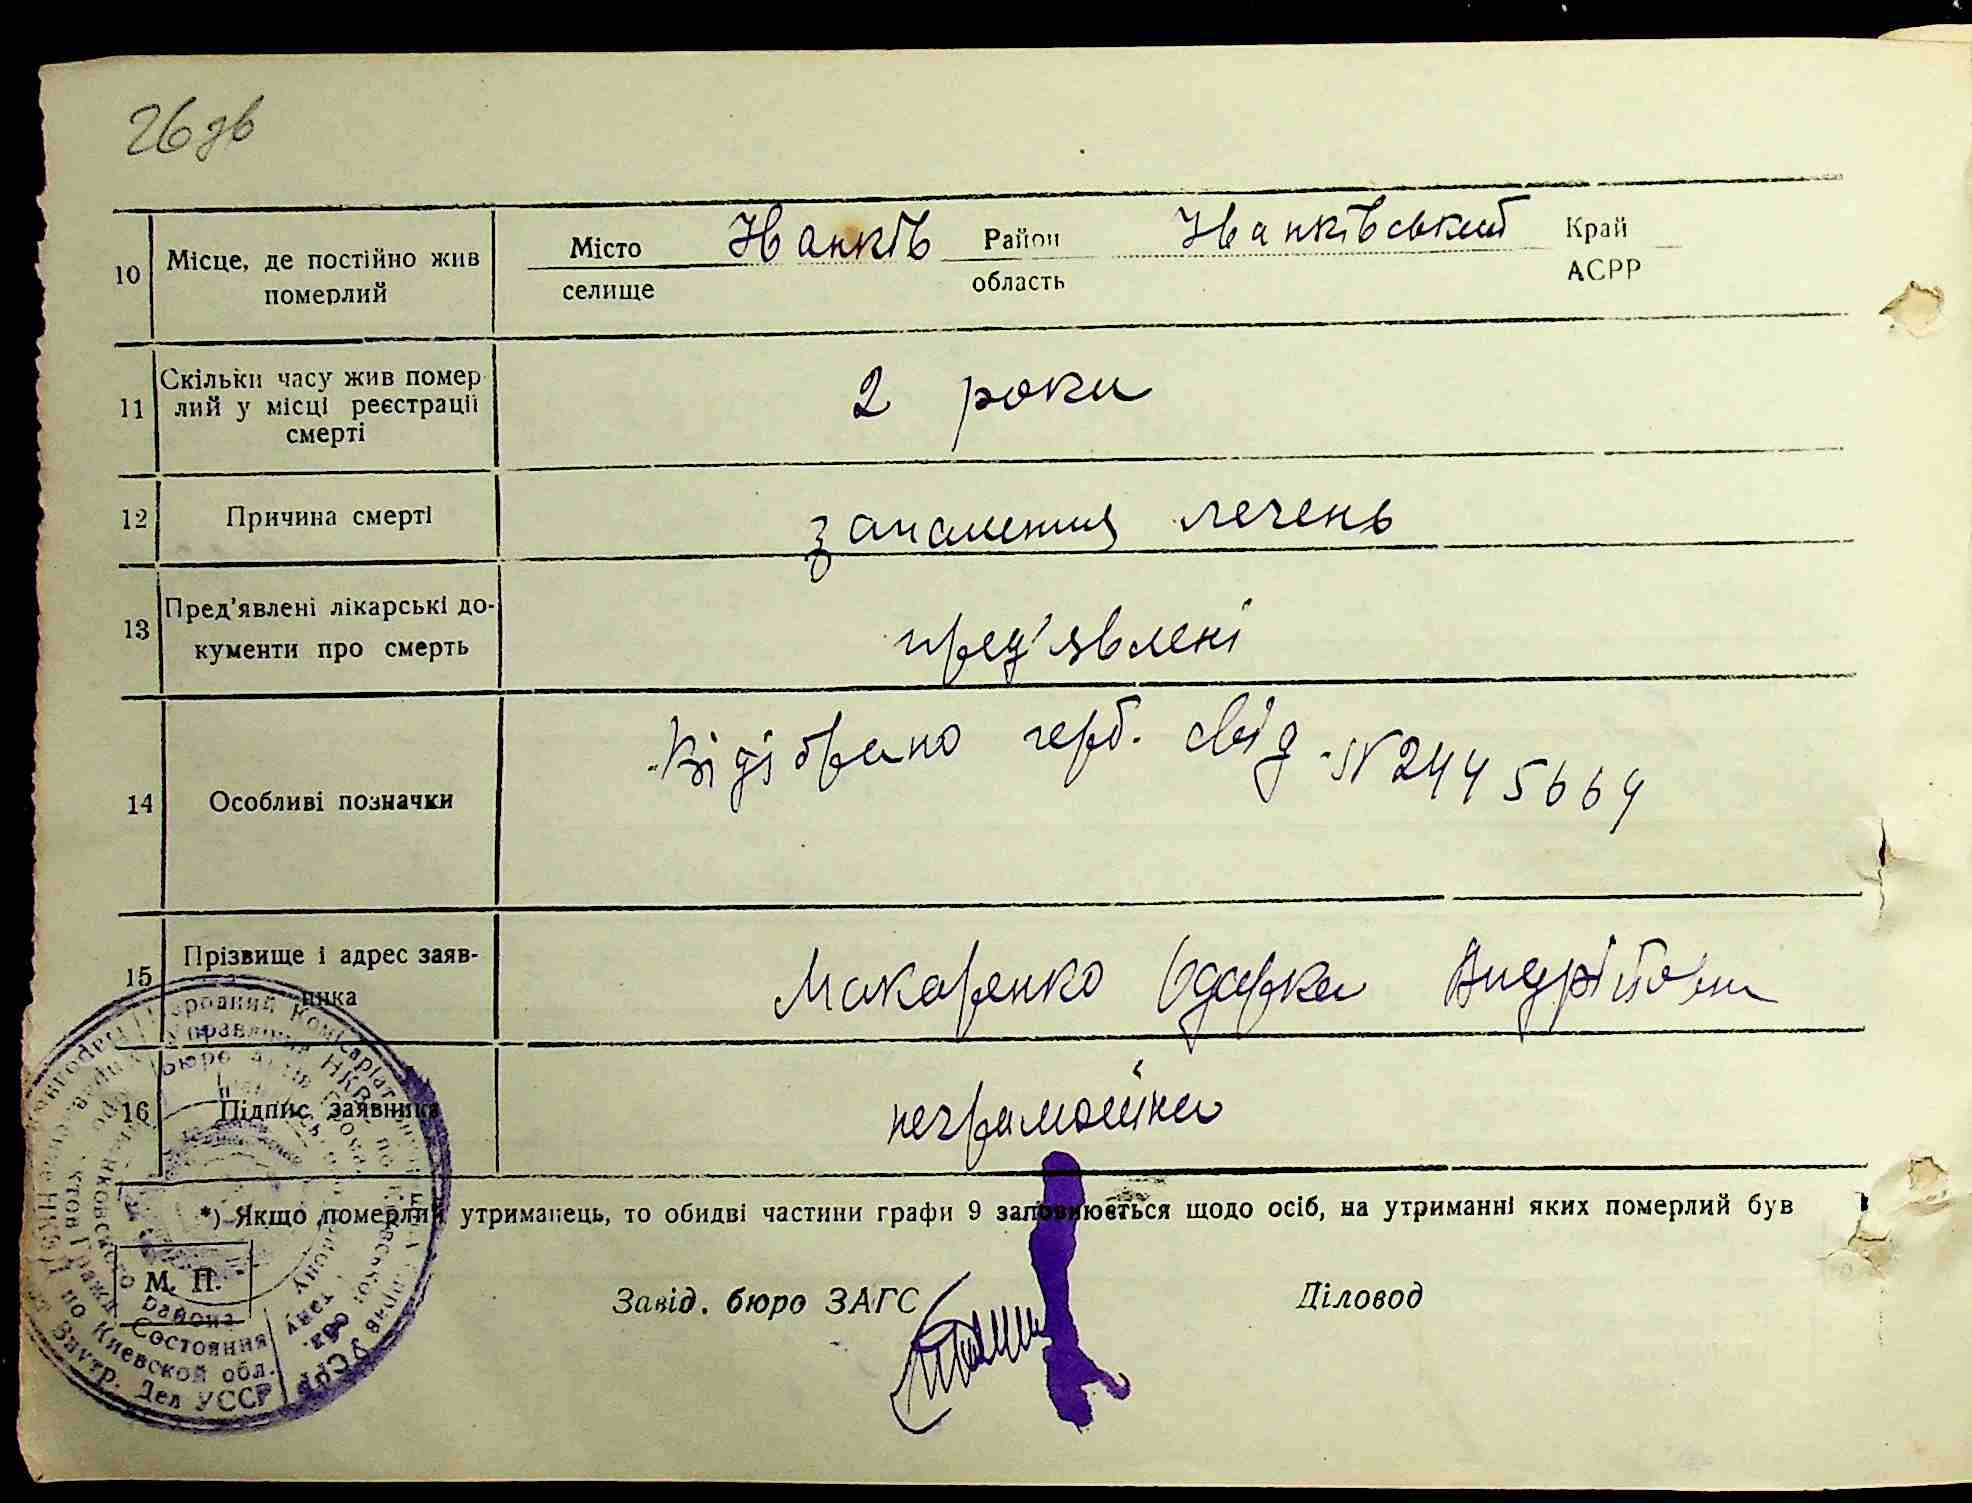 26 зв
10 Місце, де постійно жив померлий
Місто селище Іванків Район область Іванківський Край АСРР
11 Скільки часу жив помер
лий у місці реєстрації
смерті
2 роки
12 Причина смерті
запалення лечень
13 Пред'явлені лікарські до-
кументи про смерть
пред'явлені
14 Особливі позначки
Відібрано герб. свід. N 2445664
15 Прізвище і адрес заяв-
ника
Макаренко Одарка Андрійовн
16 Підпис заявника
неграмотна
*) Якщо померлий утриманець, то обидві частини графи 9 заповнюється щодо осіб, на утриманні яких померлий був
М. П.
Завід. бюро ЗАГС
Діловод
Района
Состояния
по Киевской обл.
Внутр. Дел УССР